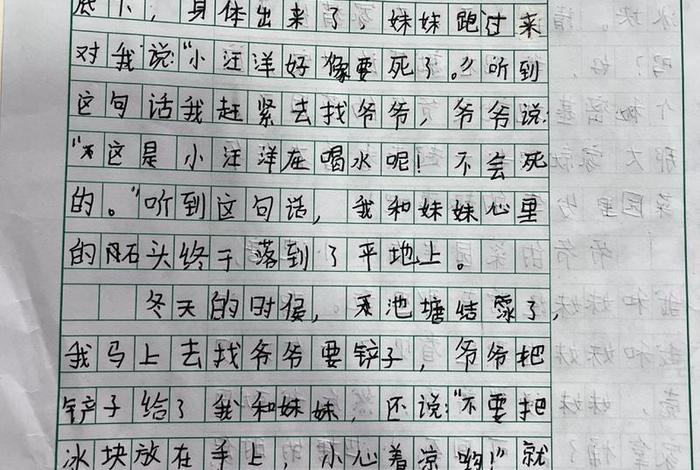 底下，身体出来了，妹妹跑过来
对我说："小汪洋好像要死了。"听到
这句话我赶紧去找爷爷，爷爷说：
"这是小汪洋在喝水呢！不会死
的。"听到这句话，我和妹妹心里
的石头终于落到了平地上。
冬天的时候，池塘结了，
我马上去找爷爷要铲子，爷爷把
铲子给了我和妹妹，还说："不要把
冰块放在手上，小心着凉哟！"就